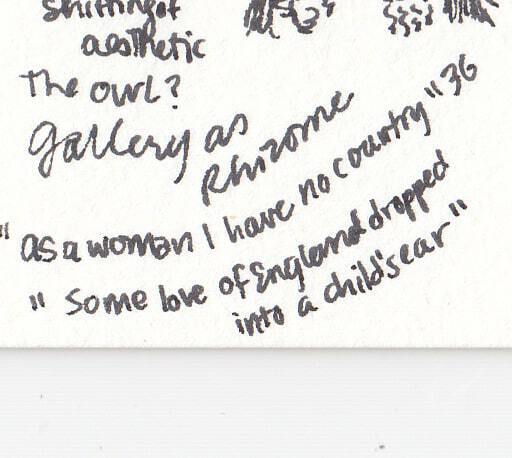 shifting of
aesthetic
The owl?
Gallery as
Rhizome
"as a woman I have no country" 36
" Some love of England dropped
into a child's ear "